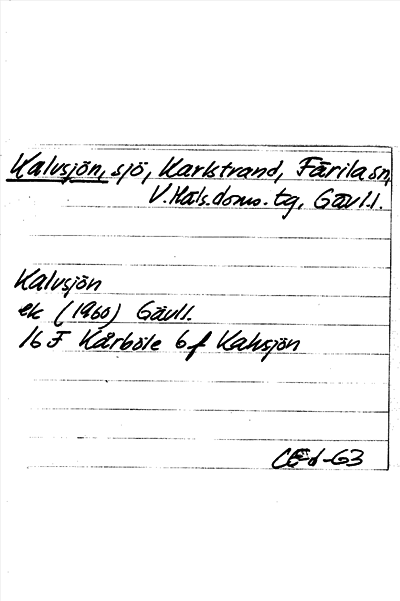 Kalvsjön, sjö, Karlstrand, Färila sn,
V.Häls.doms.tg, Gävl.l.
Kalvsjön
ek (1960) Gävll.
16 F Kårböle 6f Kalvsjön
CEd-63